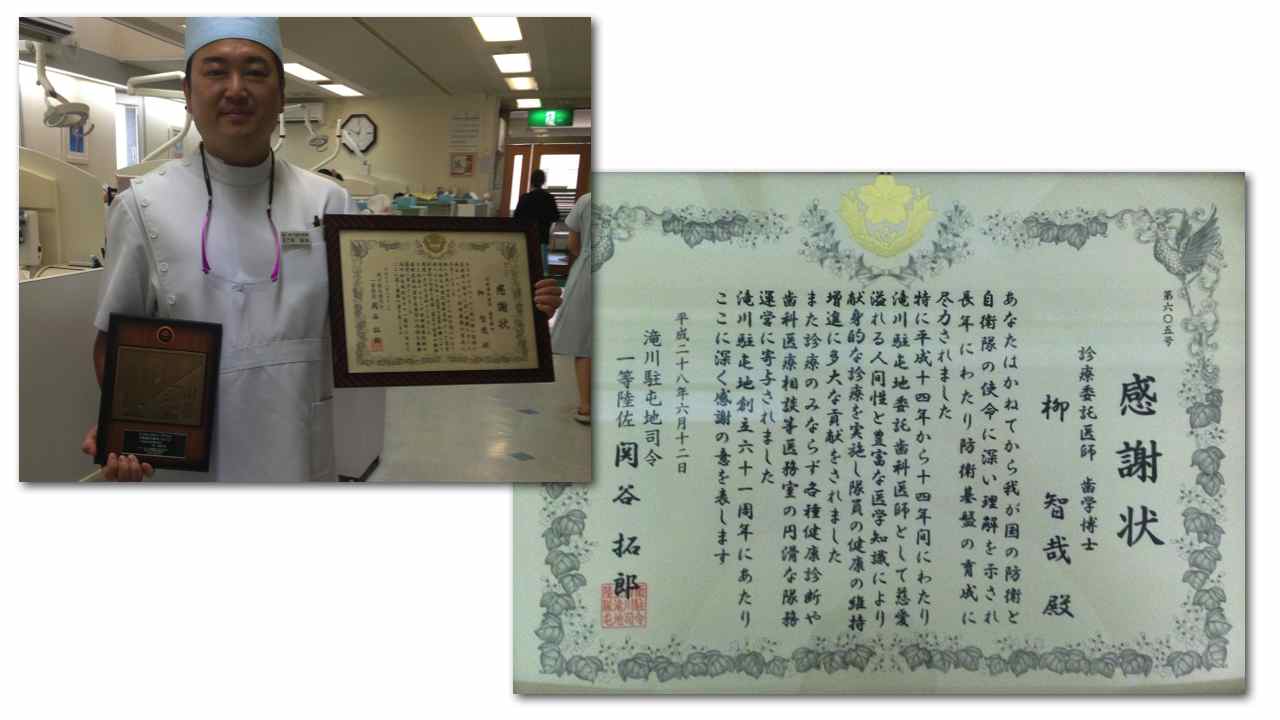 第六〇五号
感謝状
診療委託医師 歯学博士
柳 智哉 殿
あなたはかねてから我が国の防衛と
自衛隊の使命に深い理解を示され
長年にわたり防衛基盤の育成に
尽力されました
特に平成十四年から十四年間にわたり
滝川駐屯地委託歯科医師として慈愛
溢れる人間性と豊富な医学知識により
献身的な診療を実施し隊員の健康の維持
増進に多大な貢献をされました
また診療のみならず各種健康診断や
歯科医療相談等医務室の円滑な隊務
運営に寄与されました
滝川駐屯地創立六十一周年にあたり
ここに深く感謝の意を表します
平成二十八年六月十二日
滝川駐屯地司令
一等陸佐 関谷 拓郎